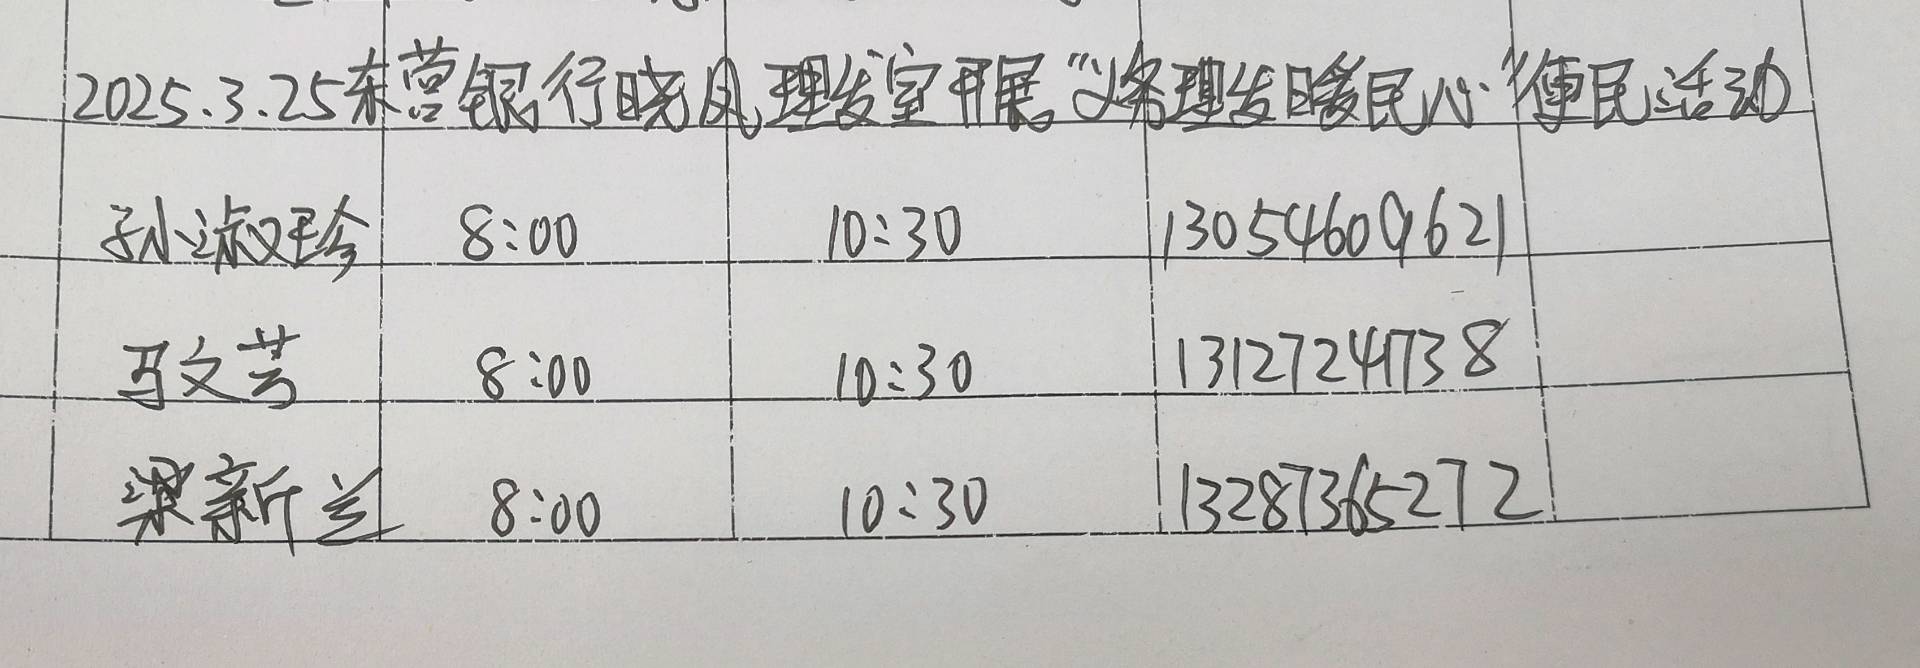 2025.3.25东营银行晓风理发室开展“义务理发暖民心”便民活动
孙淑珍 8:00 10:30 13054609621
马文芳 8:00 10:30 13127241738
梁新兰 8:00 10:30 13287365272